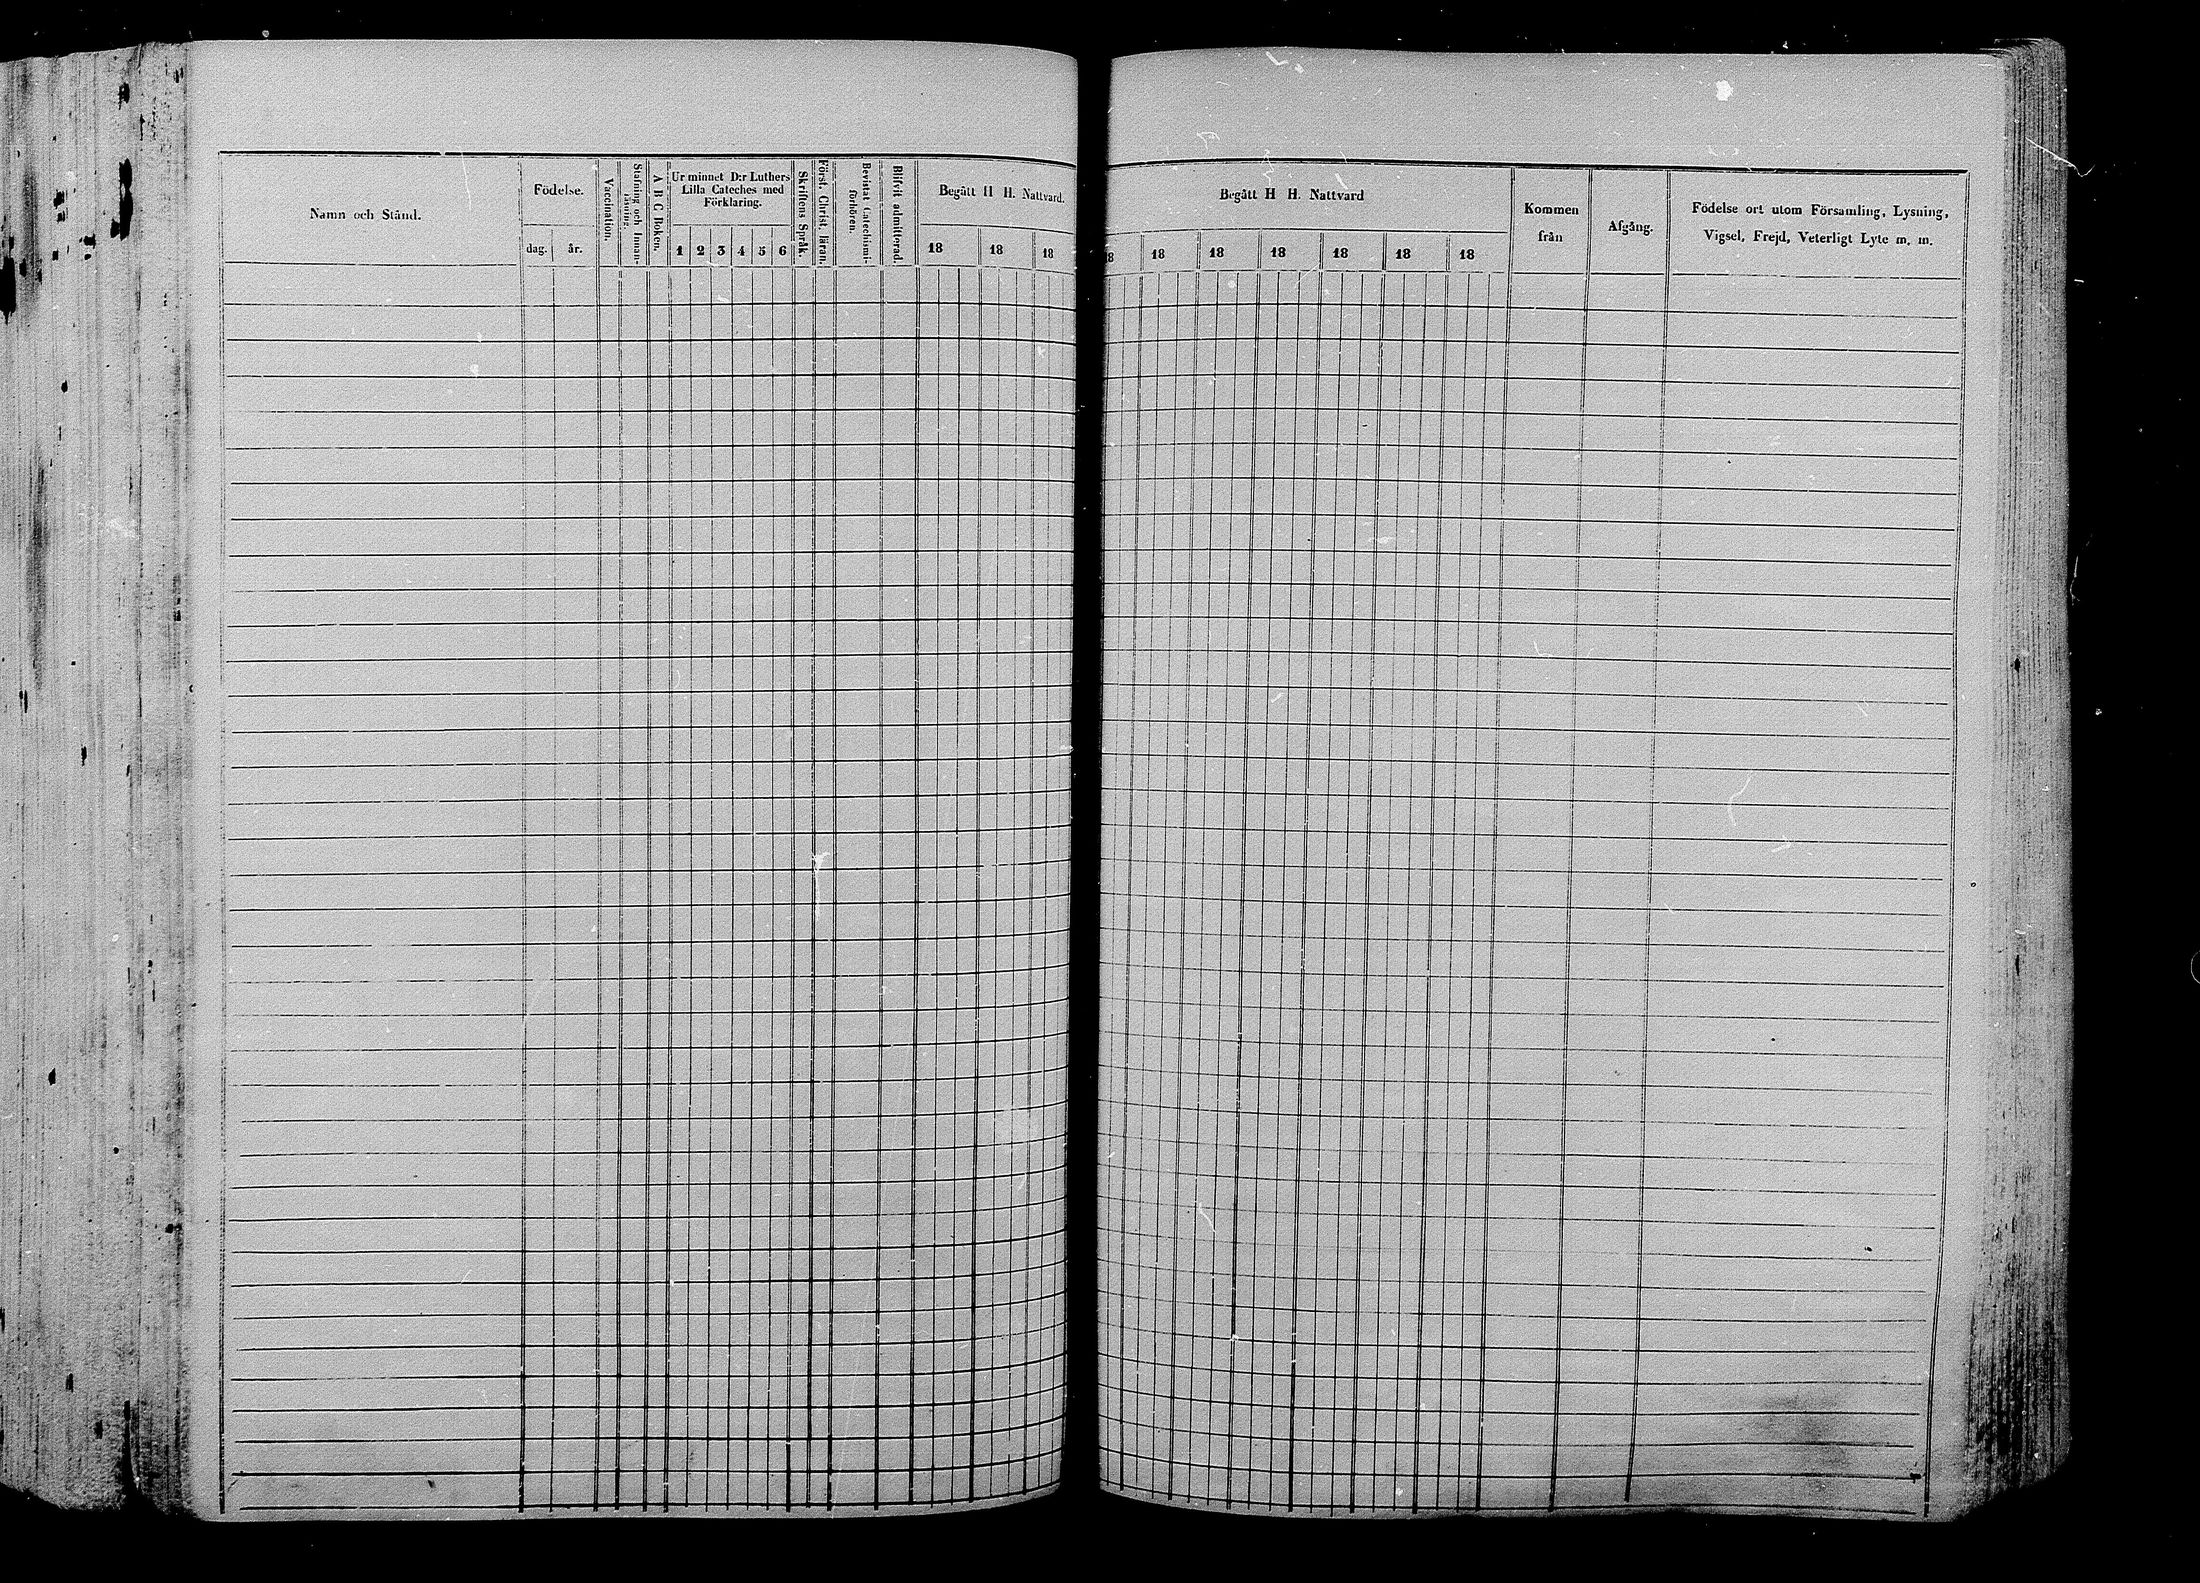 Namn och Stånd.
Födelse.
dag. år.
Vaccination.
Stafning och Innan-
läsning.
A B C Boken.
Ur minnet D:r Luthers
Lilla Cateches med
Förklaring.
1 2 3 4 5 6
Skriftens Språk.
Först. Christ. läran.
Bevistat Catechismi-
förhören.
Blifvit admitterad.
Begått H H. Nattvard.
18 18 18
Begått H H. Nattvard
18 18 18 18 18 18 18
Kommen
från
Afgång.
Födelse ort utom Församling, Lysning,
Vigsel, Frejd, Veterligt Lyte m. m.